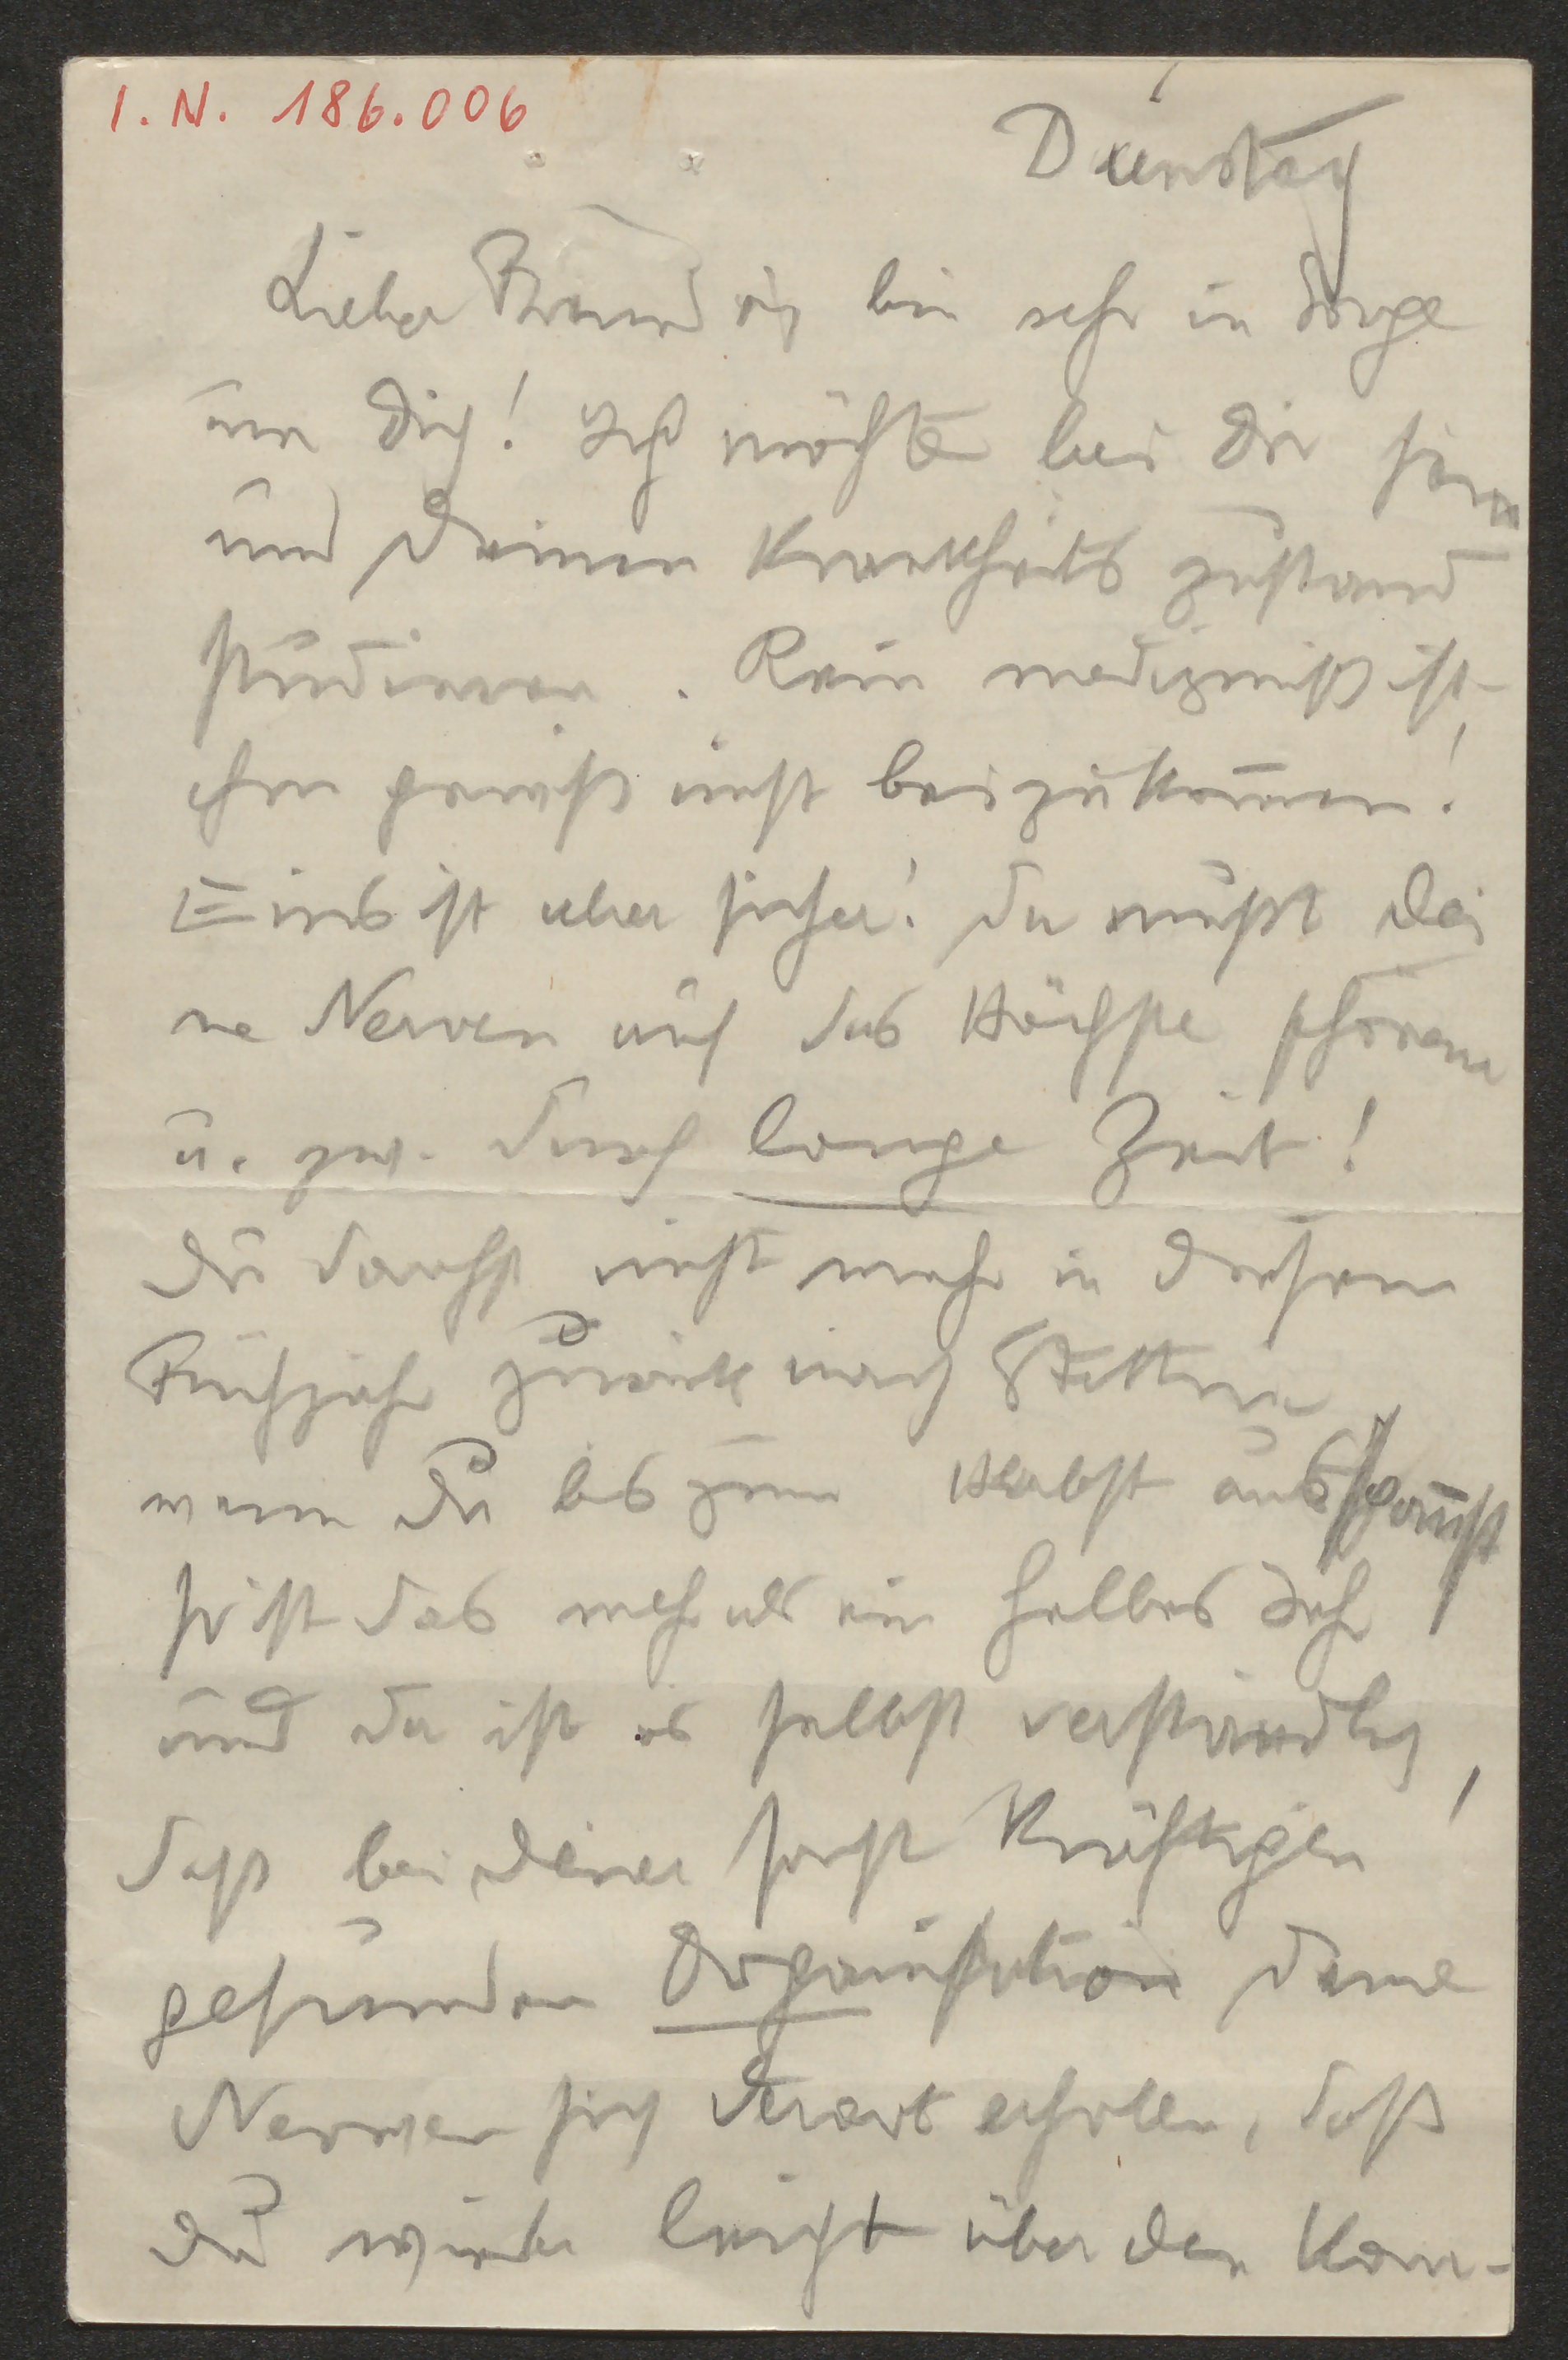 I. N. 186.006
Dienstag
Lieber Freund ich bin sehr in Sorge
um Dich! Ich möchte bei Dir sein
und Deinen Krankheits zustand
studieren. Rein medizinisch ist
ihm gewiß nicht beizukom̄en!
Eins ist aber sicher! Du mußt Dei
ne Nerven auf das Höchste schonen
u. zw. durch lange Zeit!
Du darfst nicht mehr in diesem
Frühjahr zurück nach Stettin
wenn Du bis zum Herbst ausspan̄st
so ist das mehr als ein halbes Jahr
und da ist es selbst verständlich,
daß bei Deiner sonst kräftigen
gesunden Organisation Deine
Nerven sich derart erholen, daß
Du wieder leicht über den